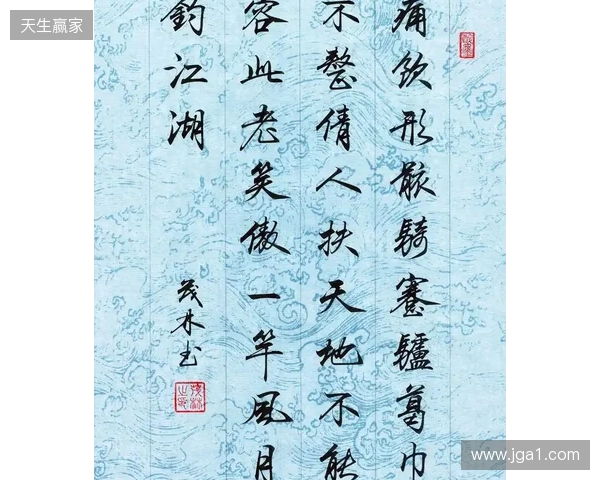 天生赢家
痛飲形骸騎蹇驢葛巾
不整倩人扶天地不能
容此老笑傲一竿風月
釣江湖
茂林书
www.jga1.com